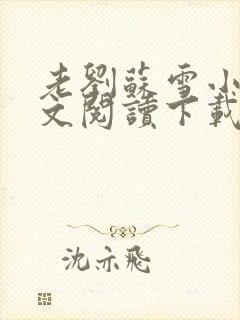 老劉蘇雪小
文閱讀下載
沈亦飛